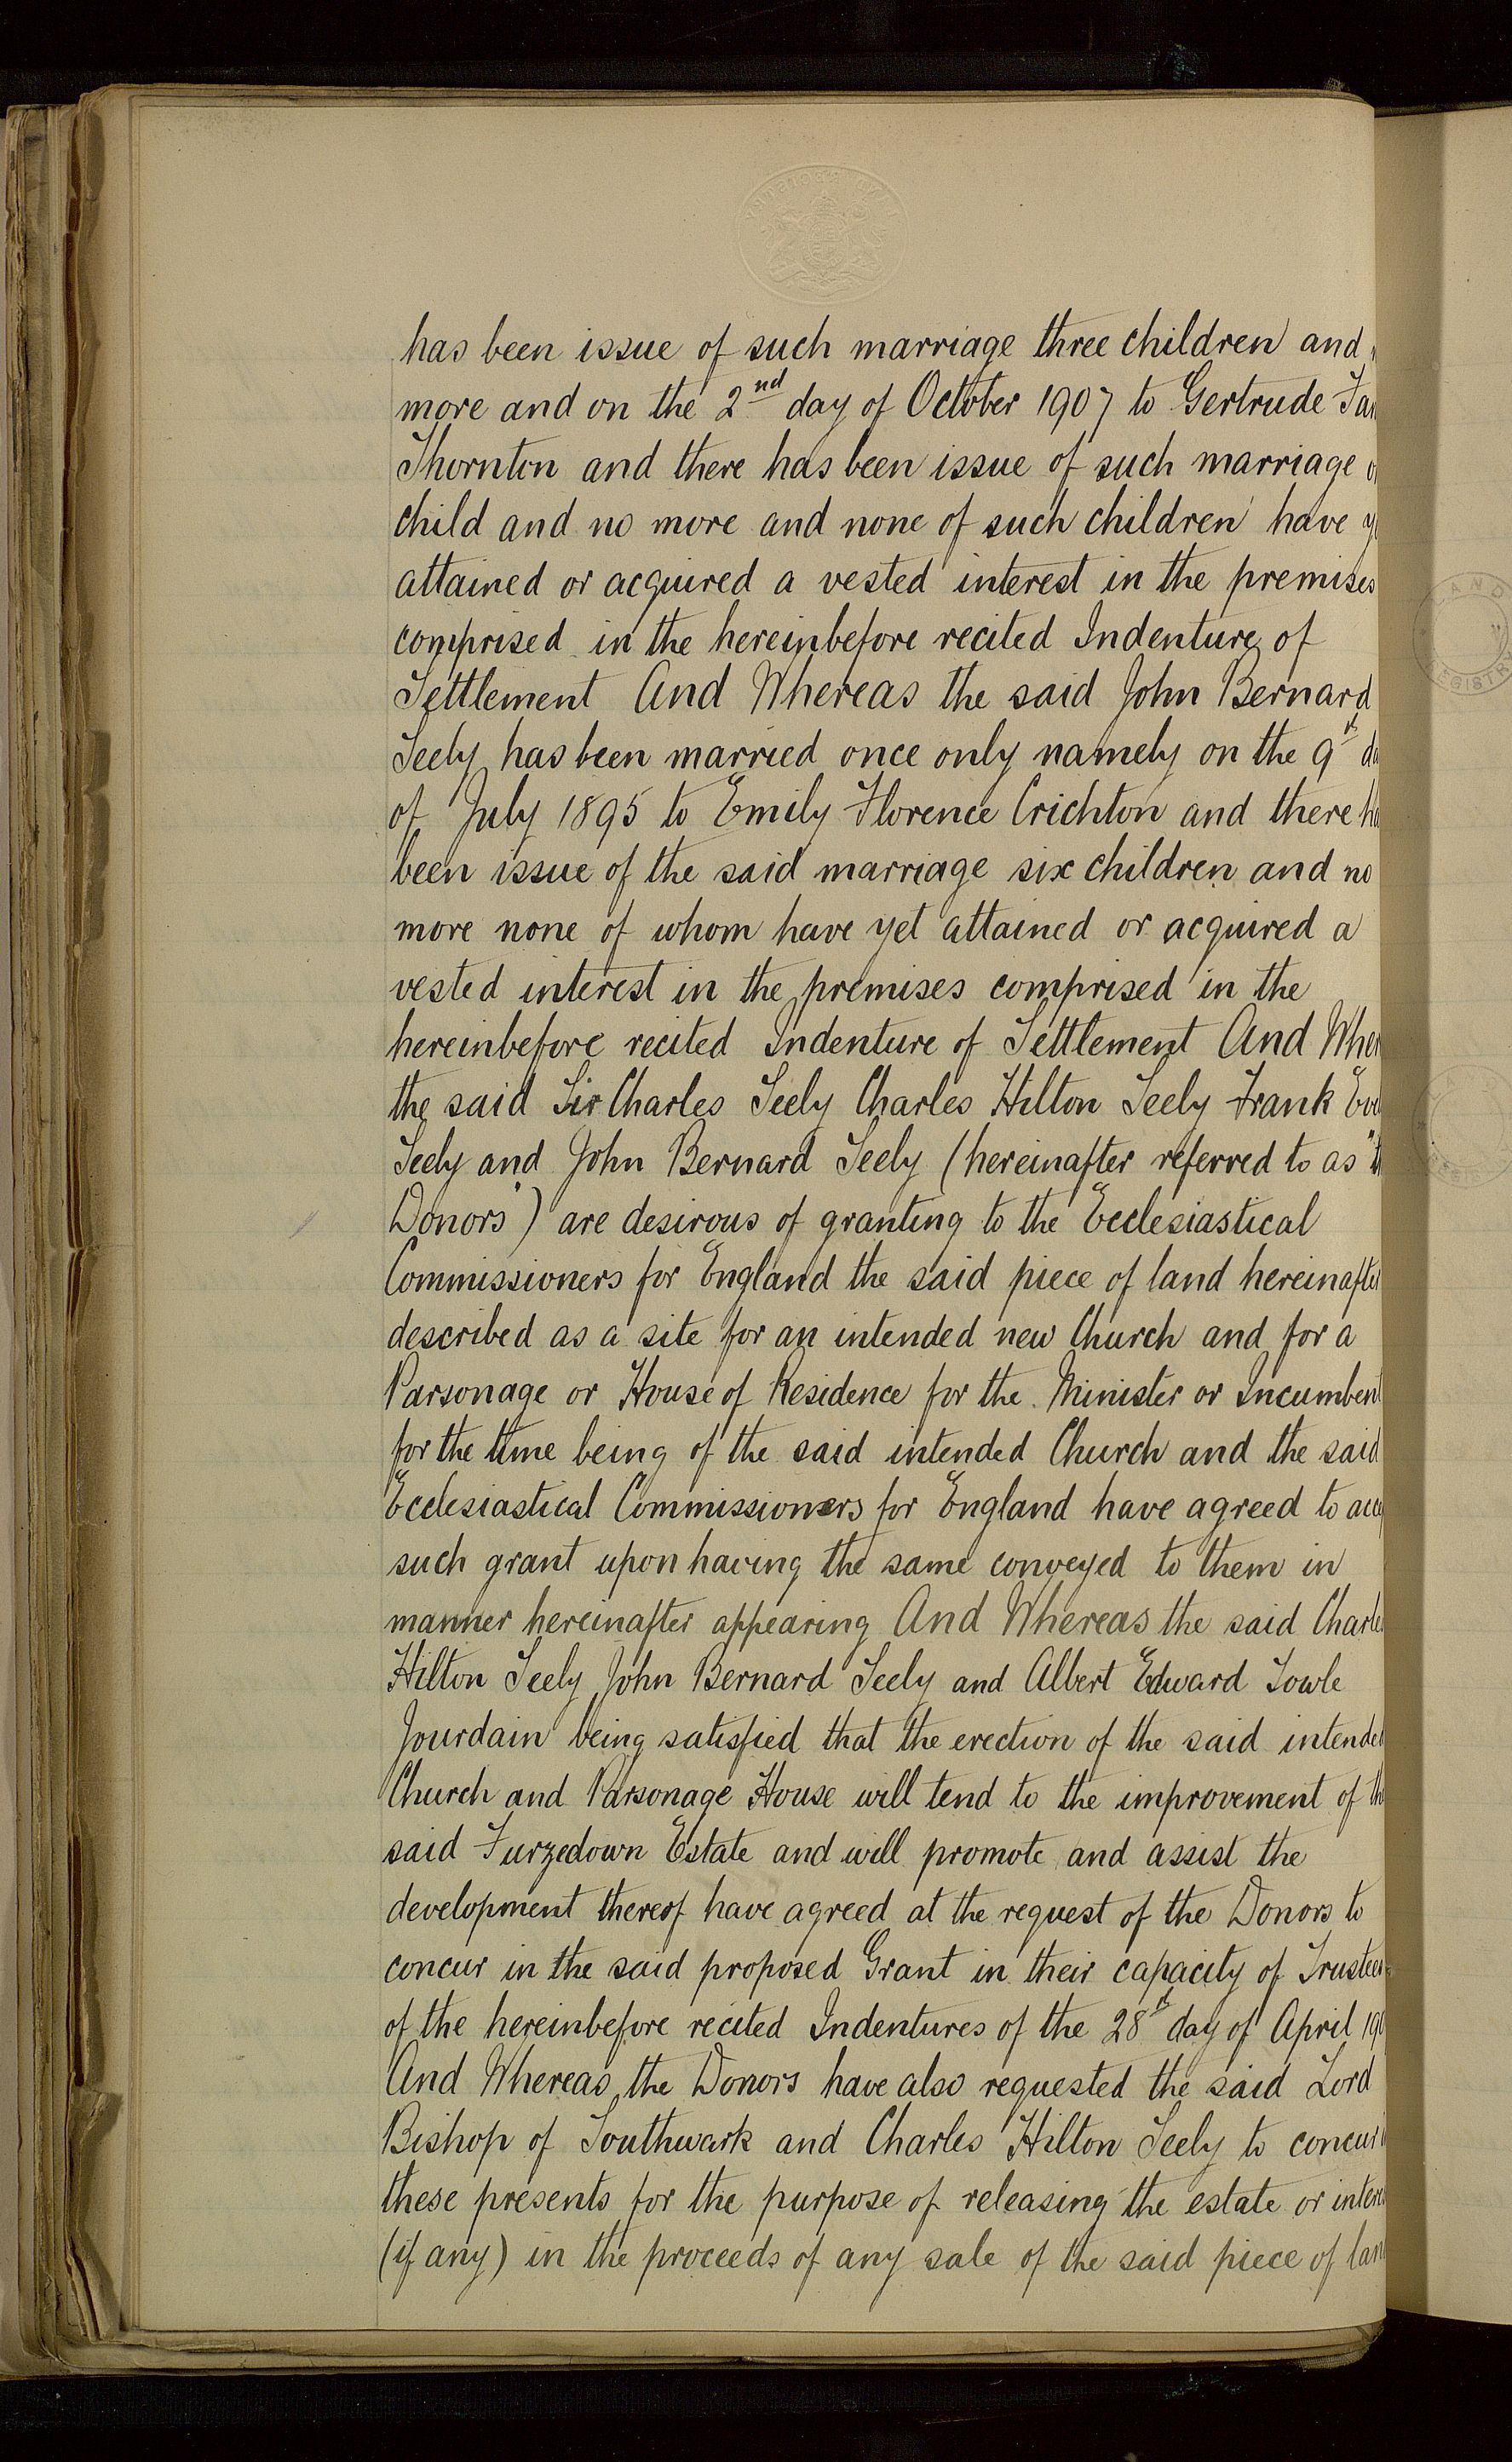 has been issue of such marriage three children and
more and on the 2nd day of October 1907 to Gertrude
Thornton and there has been issue of such marriage
child and no more and none of such children have
attained or acquired a vested interest in the premises
comprised in the hereinbefore recited Indenture of
Settlement And Whereas the said John Bernard
Seely has been married once only namely on the 9th
of July 1895 to Emily Florence Crichton and there
been issue of the said marriage six children and no
more none of whom have yet attained or acquired a
vested interest in the premises comprised in the
hereinbefore recited Indenture of Settlement And Wher
the said Sir Charles Seely Charles Hilton Seely Frank
Seely and John Bernard Seely (hereinafter referred to as
Donors") are desirous of granting to the Ecclesiastical
Commissioners for England the said piece of land hereinafter
described as a site for an intended new Church and for a
Parsonage or House of Residence for the Minister or Incumbent
for the time being of the said intended Church and the said
Ecclesiastical Commissioners for England have agreed to
such grant upon having the same conveyed to them in
manner hereinafter appearing And Whereas the said Charle
Hilton Seely John Bernard Seely and Albert Edward Towle
Jourdain being satisfied that the erection of the said intended
Church and Parsonage House will tend to the improvement of th
said Furzedown Estate and will promote and assist the
development thereof have agreed at the request of the Donors to
concur in the said proposed Grant in their capacity of Trustees
of the hereinbefore recited Indentures of the 28th day of April 190
And Whereas the Donors have also requested the said Lord
Bishop of Southwark and Charles Hilton Seely to concur
these presents for the purpose of releasing the estate or
(if any) in the proceeds of any sale of the said piece of lan
LAND
REGISTRY